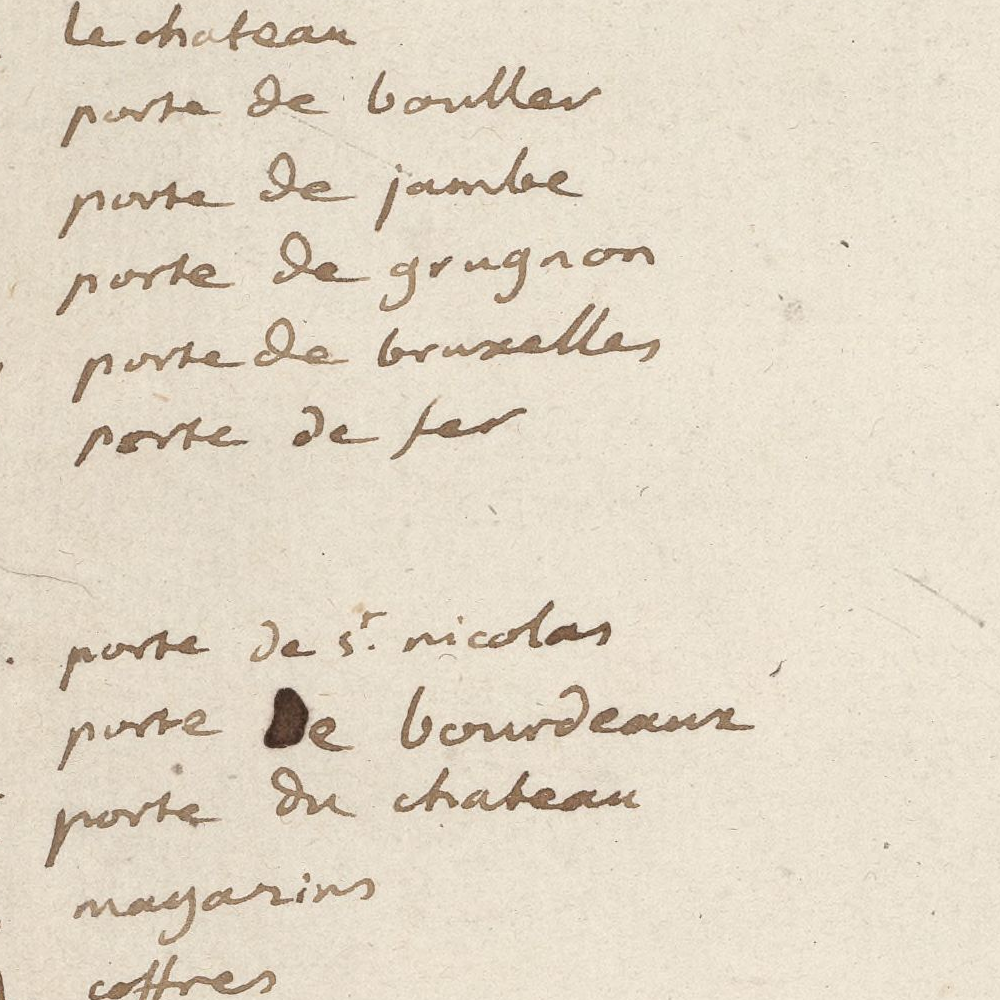 le chateau
porte de bouller
porte de jambe
porte de grugnon
porte de bruxelles
porte de fer
porte de st. nicolas
porte de bourdeaux
porte du chateau
magazins
coffres